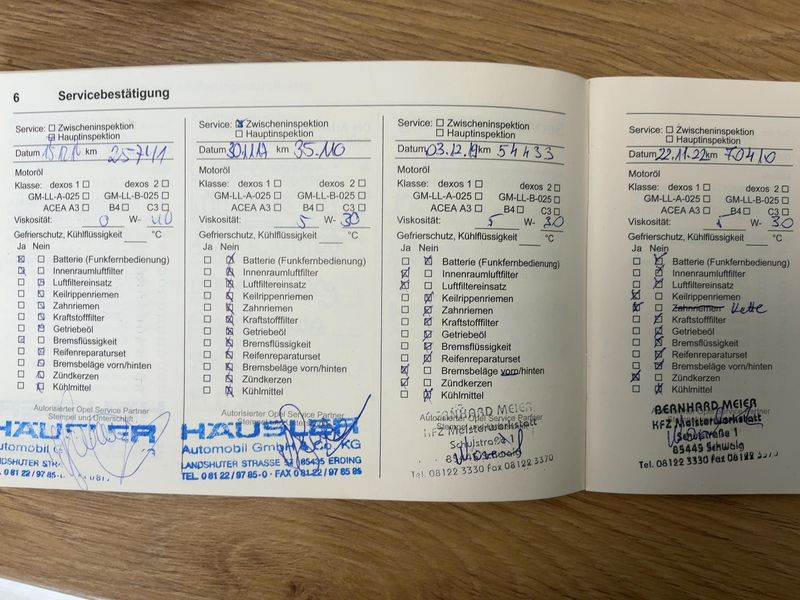 6 Servicebestätigung
Service: Zwischeninspektion
Hauptinspektion
Datum km 25741
Motoröl
Klasse: dexos 1 dexos 2
GM-LL-A-025 GM-LL-B-025
ACEA A3 B4 C3
Viskosität: 0 W- 40
Gefrierschutz, Kühlflüssigkeit °C
Ja Nein
Batterie (Funkfernbedienung)
Innenraumluftfilter
Luftfiltereinsatz
Keilrippenriemen
Zahnriemen
Kraftstofffilter
Getriebeöl
Bremsflüssigkeit
Reifenreparaturset
Bremsbeläge vorn/hinten
Zündkerzen
Kühlmittel
Autorisierter Opel Service Partner
Stempel und Unterschrift
HÄUSLER
Automobil
LANDSHUTER STR
81 22 / 97 85
Service: Zwischeninspektion
Hauptinspektion
Datum 30.11.17 km 35.110
Motoröl
Klasse: dexos 1 dexos 2
GM-LL-A-025 GM-LL-B-025
ACEA A3 B4 C3
Viskosität: 5 W- 30
Gefrierschutz, Kühlflüssigkeit °C
Ja Nein
Batterie (Funkfernbedienung)
Innenraumluftfilter
Luftfiltereinsatz
Keilrippenriemen
Zahnriemen
Kraftstofffilter
Getriebeöl
Bremsflüssigkeit
Reifenreparaturset
Bremsbeläge vorn/hinten
Zündkerzen
Kühlmittel
Autorisierter Opel Service Partner
HÄUSLER
Automobil GmbH & Co. KG
LANDSHUTER STRASSE 85435 ERDING
TEL. 0 81 22 / 97 85-0 · FAX 0 81 22 / 97 85 85
Service: Zwischeninspektion
Hauptinspektion
Datum 03.12.19 km 54433
Motoröl
Klasse: dexos 1 dexos 2
GM-LL-A-025 GM-LL-B-025
ACEA A3 B4 C3
Viskosität: 5 W- 30
Gefrierschutz, Kühlflüssigkeit °C
Ja Nein
Batterie (Funkfernbedienung)
Innenraumluftfilter
Luftfiltereinsatz
Keilrippenriemen
Zahnriemen
Kraftstofffilter
Getriebeöl
Bremsflüssigkeit
Reifenreparaturset
Bremsbeläge vorn/hinten
Zündkerzen
Kühlmittel
Autorisierter Opel Service Partner
Stempel und Unterschrift
BERNHARD MEIER
KFZ Meisterwerkstatt
Schulstraße 1
85445 Schwaig
Tel. 08122 3330 Fax 08122 3370
Service: Zwischeninspektion
Hauptinspektion
Datum 22.11.22 km 70410
Motoröl
Klasse: dexos 1 dexos 2
GM-LL-A-025 GM-LL-B-025
ACEA A3 B4 C3
Viskosität: 5 W- 30
Gefrierschutz, Kühlflüssigkeit °C
Ja Nein
Batterie (Funkfernbedienung)
Innenraumluftfilter
Luftfiltereinsatz
Keilrippenriemen
Zahnriemen Kette
Kraftstofffilter
Getriebeöl
Bremsflüssigkeit
Reifenreparaturset
Bremsbeläge vorn/hinten
Zündkerzen
Kühlmittel
BERNHARD MEIER
KFZ Meisterwerkstatt
Schulstraße 1
85445 Schwaig
Tel. 08122 3330 Fax 08122